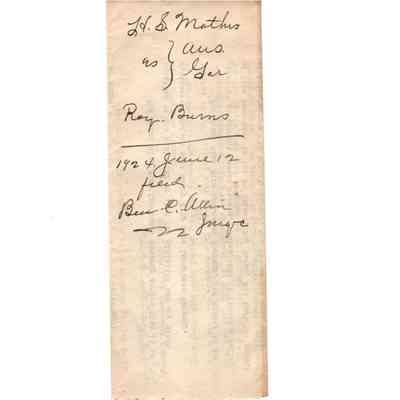 H. S. Mathis
vs } Ans.
Gar
Roy. Burns
1924 June 12
filed.
Ben C. Allin